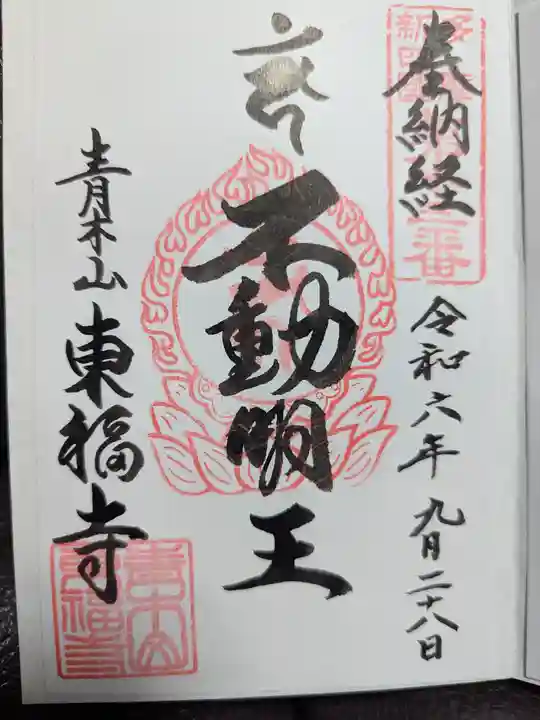 奉納経
令和六年九月二十八日
不動明王
青木山東福寺